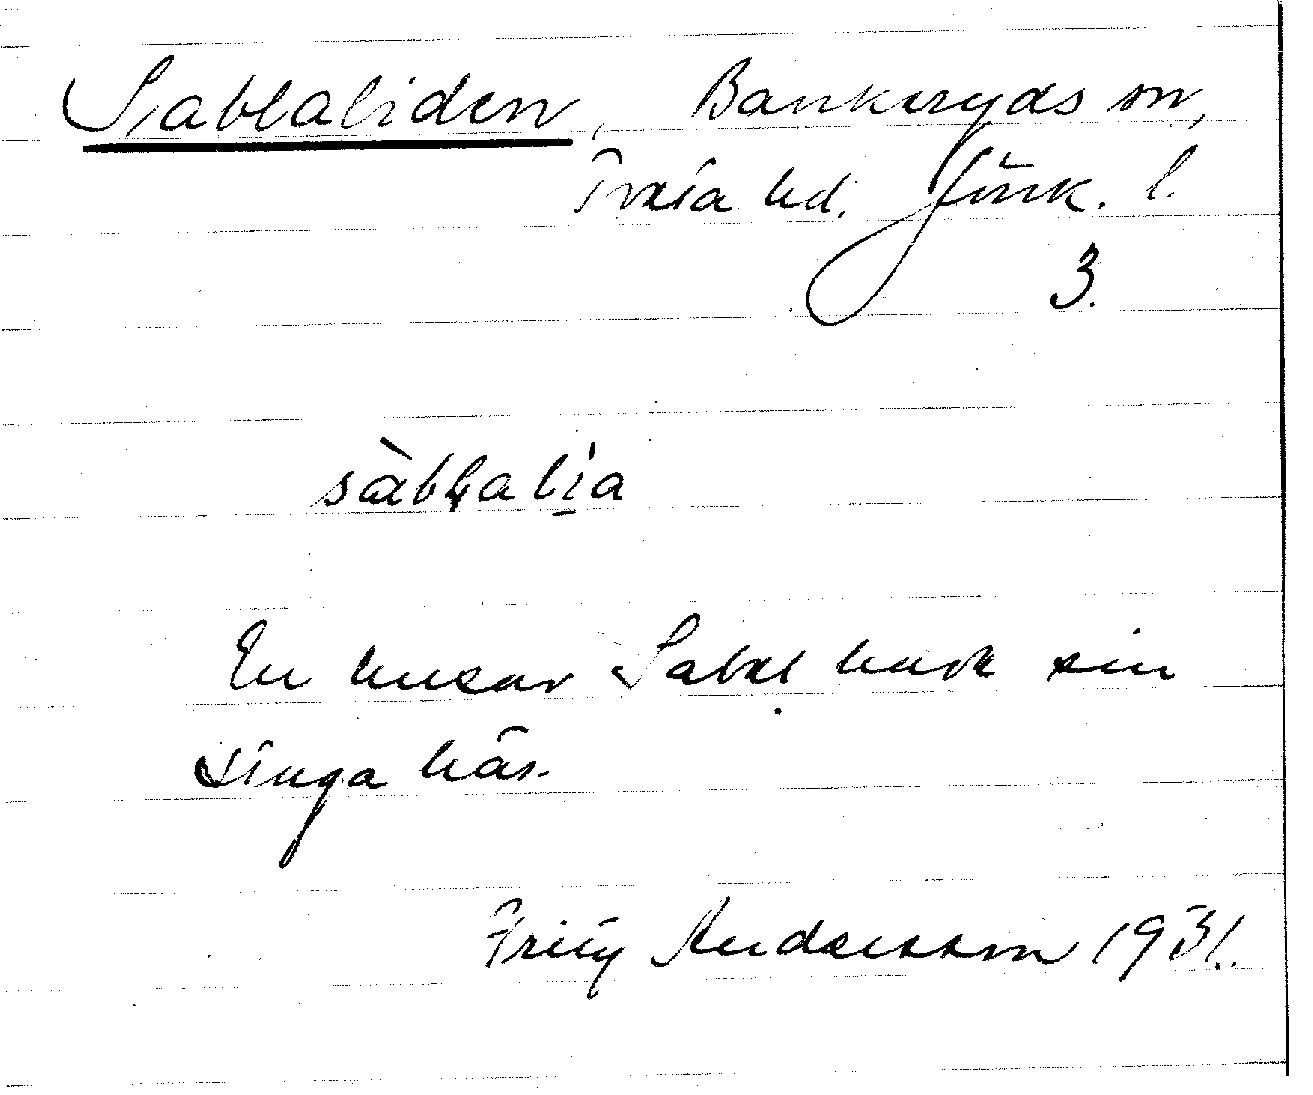 Sablaliden, Bankeryds sn,
Tveta hd. Jönk. l.
3.
sàbɫalia
En husar Sabel hade sin
stuga här.
Fritz Andersson 1931.